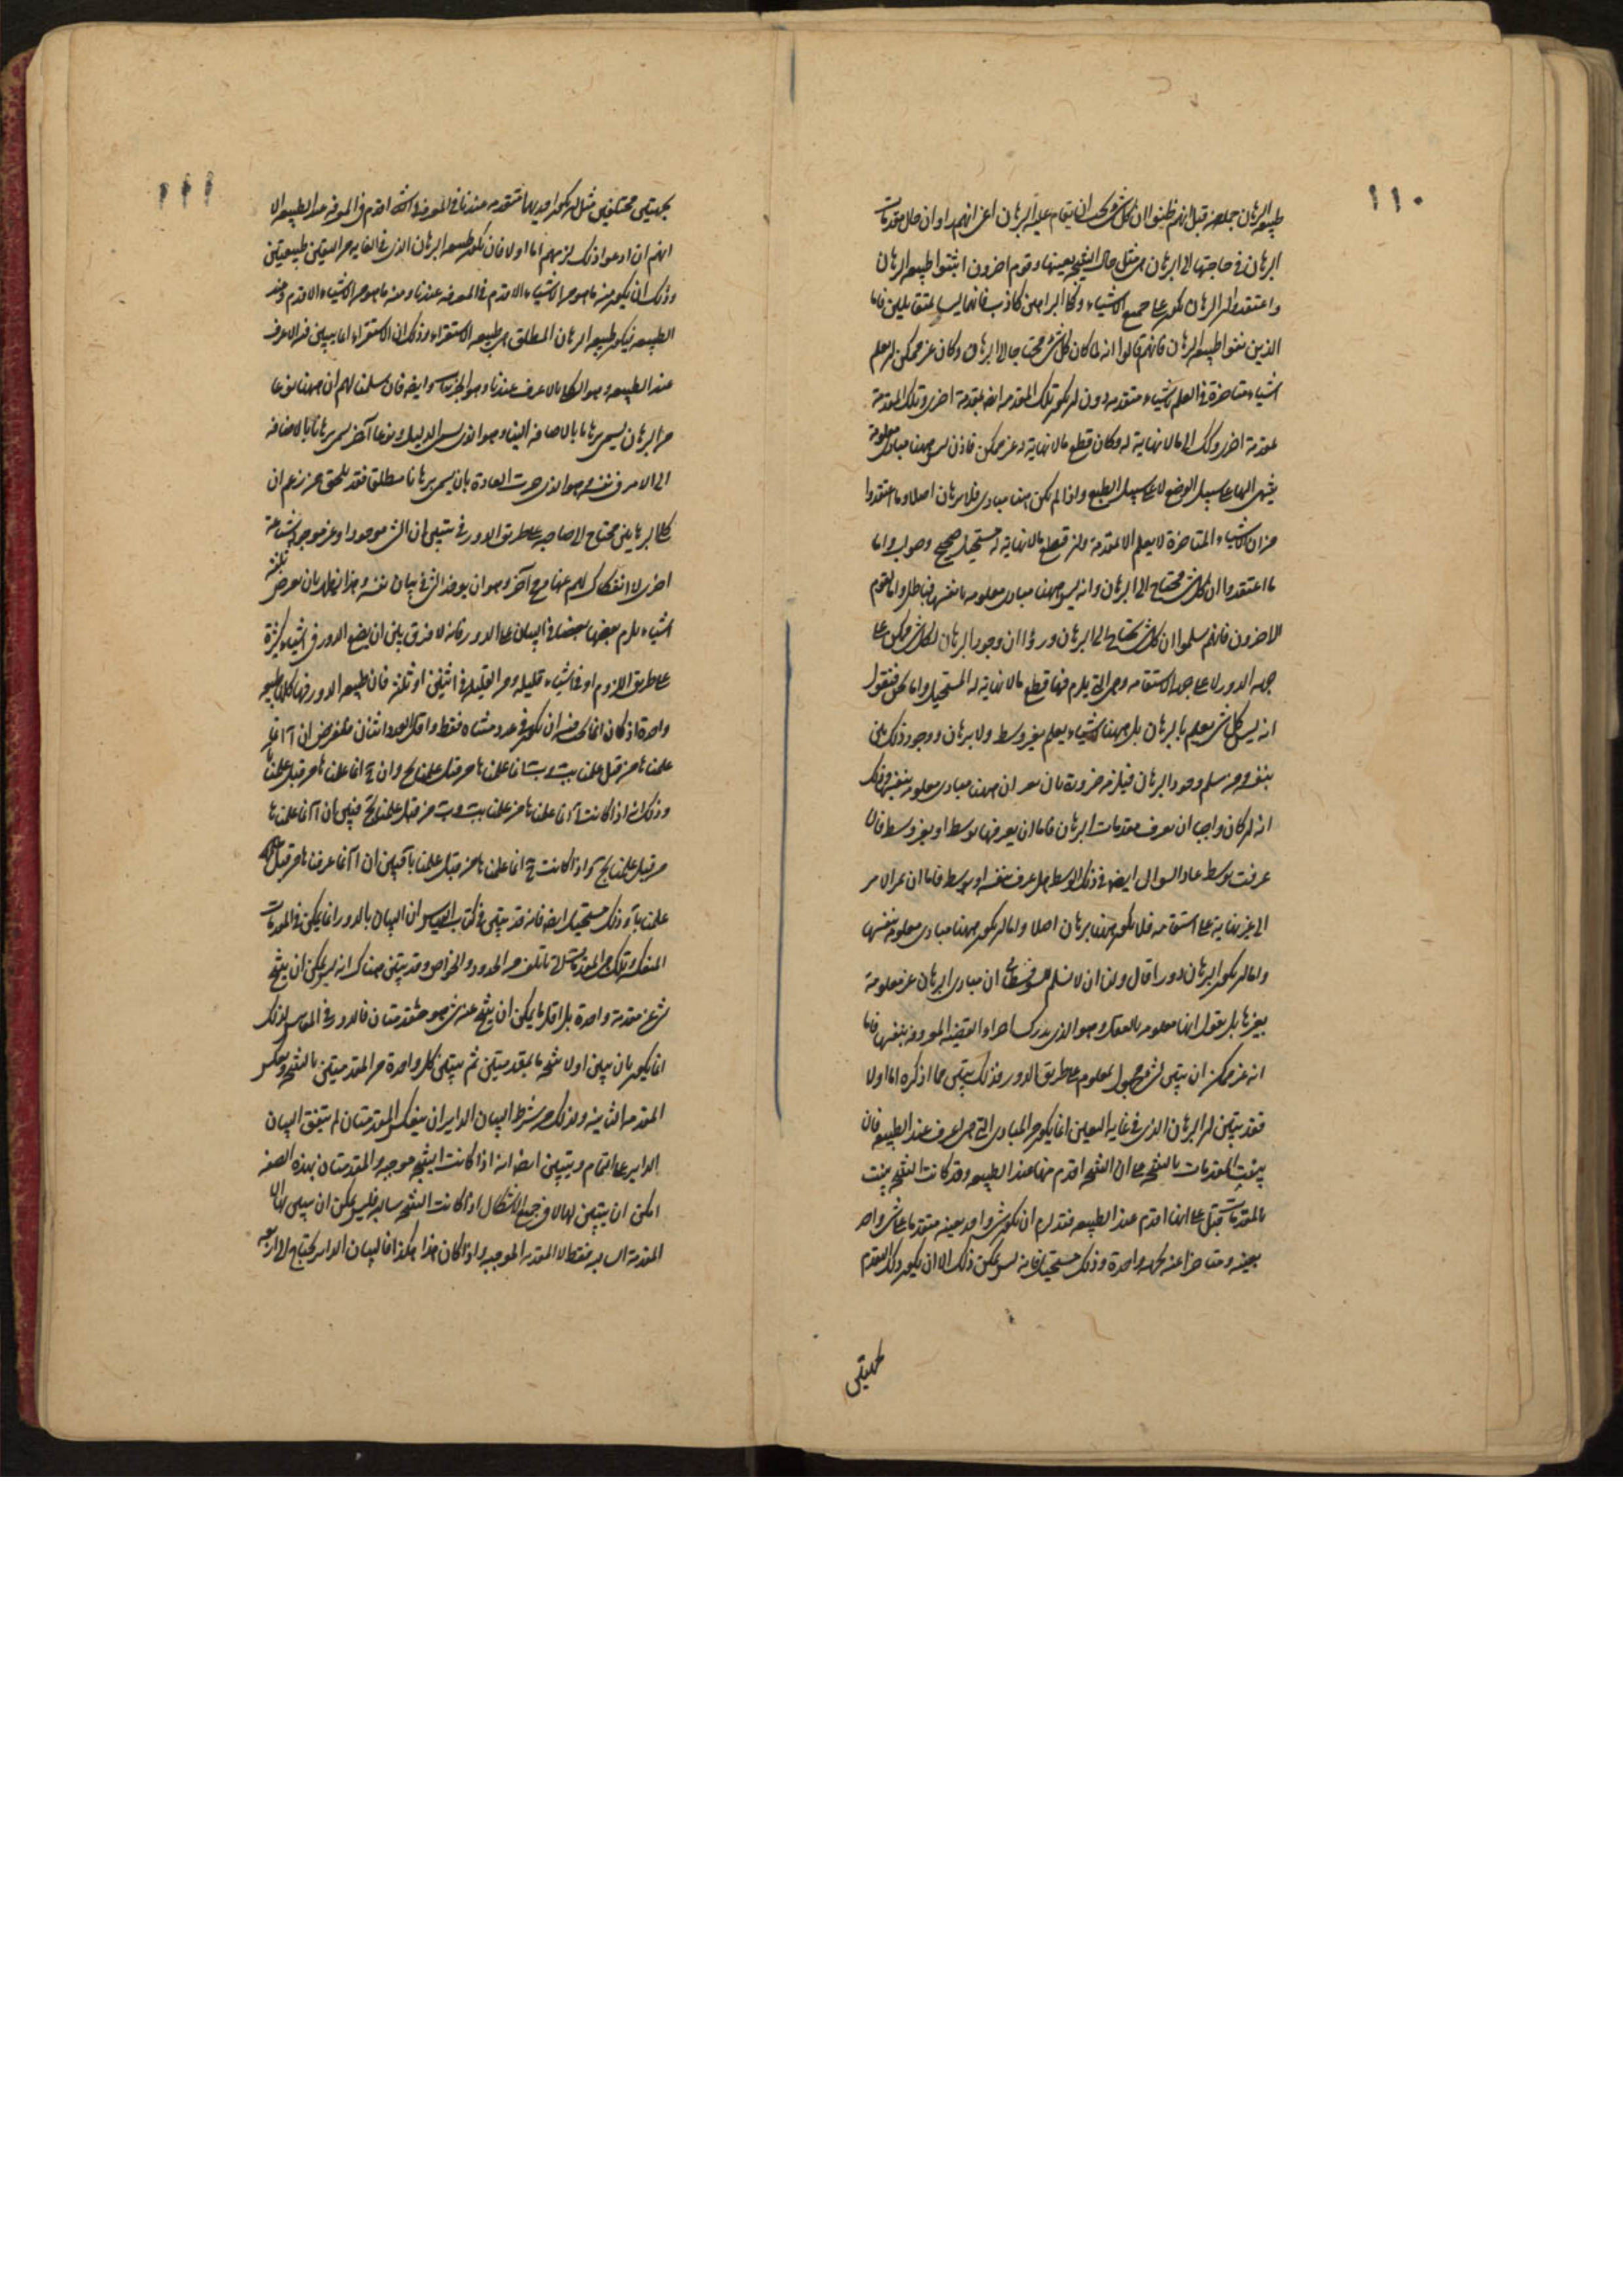 ١١٠
طبيعة البرهان جملة من قبل انهم ظنوا ان كل شى يجب ان يقام عليه البرهان اعنى انهم راوا ان حال مقدمات
البرهان فى حاجتها الى البرهان هى مثل حال النتيجة بعينها وقوم اخرون اثبتوا طبيعة البرهان
واعتقدوا ان البرهان يكون على جميع الاشياء وكلا الراءيين كاذب فانهما ليسا بمتقابلين فاما
الذين نفوا طبيعة البرهان فانهم قالوا انه لما كان كل شى محتاجا الى البرهان وكان غير ممكن ان يعلم
اشياء متاخرة فى العلم باشياء متقدمة دون ان يكون تلك المقدمة ايضا بمقدمة اخرى وتلك المقدمة
بمقدمة اخرى وذلك الى ما لا نهاية له وكان قطع ما لا نهاية له غير ممكن فاذن ليس ههنا مبادى معلومة
ينتهى اليها على سبيل الوضع لا على سبيل الطبع واذا لم يكن هنا مبادى فلا برهان اصلا وما اعتقدوا
من ان الاشياء المتاخرة لا يعلم الا بمقدمة وان قطع ما لا نهاية له مستحيل صحيح وصواب واما
ما اعتقدوا ان كل شى محتاج الى البرهان وانه ليس ههنا مبادى معلومة بانفسها فباطل واما القوم
الاخرون فانهم سلموا ان كل شى يحتاج الى البرهان وراوا ان وجود البرهان لكل شى ممكن على
جهة الدور لا على جهة الاستقامة وهى التى يلزم فيها قطع ما لا نهاية له المستحيل واما نحن فنقول
انه ليس كل شى يعلم بالبرهان بل ههنا اشياء يعلم بغير وسط ولا برهان ووجود ذلك بين
بنفسه ومن سلم وجود البرهان فيلزمه ضرورة ان يعرف ان ههنا مبادى معلومة بنفسها وذلك
انه ان كان واجبا ان يعرف مقدمات البرهان فاما ان يعرفها بوسط او بغير وسط فان
عرفت بوسط عاد السوال ايضا فى ذلك الوسط هل عرف بنفسه او بوسط فاما ان يمر الامر
الى غير نهاية على استقامة فلا يكون ههنا برهان اصلا واما ان يكون ههنا مبادى معلومة بنفسها
واما ان يكون البرهان دورا قال ولنا ان لا نسلم للسوفسطائى ان مبادى البرهان غير معلومة
بغيرها بل نقول انها معلومة بالعقل وهو الذى يدرك اجزاء القضية المعروفة بنفسها فاما
انه غير ممكن ان يتبين شى مجهول بمعلوم على طريق الدور فذلك يتبين مما اذكره اما اولا
فقد يتبين ان البرهان الذى فى غاية اليقين انما يكون من المبادى التى هى اعرف عند الطبيعة فان
بينت المقدمات بالنتيجة على ان النتيجة اقدم منها عند الطبيعة وقد كانت النتيجة بينت
بالمقدمات قبل على انها اقدم عند الطبيعة فقد لزم ان يكون شى واحد بعينه متقدما على شى واحد
بعينه ومتاخرا عنه بجهة واحدة وذلك مستحيل فانه ليس يمكن ذلك الا ان يكون ذلك التقدم
بجهتين
١١١
بجهتين مختلفتين مثل ان يكون احديهما متقدمة عندنا فى المعرفة والثانية اقدم فى المعرفة عند الطبيعة الا
انهم ان ادعوا ذلك لزمهم اما اولا فان يكون طبيعة البرهان الذى فى الغاية من اليقين طبيعتين
وذلك ان يكون منه ما هو من الاشياء الاقدم فى المعرفة عندنا ومنه ما هو من الاشياء الاقدم عند
الطبيعة فيكون طبيعة البرهان المطلق هى طبيعة الاستقراء وذلك ان الاستقراء انما يبين فيه الاعرف
عند الطبيعة وهو الكلى بالاعرف عندنا وهو الجزئيات وايضا فان سلمنا لهم ان ههنا نوعا
من البرهان يسمى برهانا بالاضافة الينا وهو الذى يسمى الدليل ونوعا آخر يسمى برهانا بالاضافة
الى الامر فى نفسه وهو الذى جرت العادة بان يسمى برهانا مطلقا فقد يلحق من زعم ان
كلا البرهانين محتاج الى صاحبه على طريق الدور فى تبيين ان الشى موجودا او غير موجود شناعة
اخرى لا انفكاك لهم عنها من وجه آخر وهو ان يوخذ الشى فى بيان نفسه وهذا يظهر بان نعرض ثلثة
اشياء يلزم بعضها بعضا فى البيان على الدور فانه لا فرق بين ان يضع الدور فى اشياء كثيرة
على طريق اللزوم او فى اشياء قليلة ومن القليلة فى اثنين او ثلثة فان طبيعة الدور فيها كلها طبيعة
واحدة اذ كان انما يجب فيه ان يكون فى عدد متناه فقط واقل العدد اثنان فلنفرض ان آ انما
علمناها من قبل علمنا بب وب انما علمناها من قبل علمنا بج وان ج انما علمناها من قبل علمنا بآ
وذلك انه اذا كانت آ انما علمناها من علمنا بب وب من قبل علمنا بج فبين ان آ انما علمناها
من قبل علمنا بج واذا كانت ج انما علمناها من قبل علمنا بآ فبين ان آ انما عرفناها من قبل
علمنا بآ وذلك مستحيل ايضا فانه قد تبين فى كتاب القياس ان البيان بالدور انما يمكن فى المقدمات
المنعكسة وتلك هى المقدمات التى تاتلف من الحدود والخواص وقد تبين هناك انه ليس يمكن ان ينتج
شى عن مقدمة واحدة بل اقل ما يمكن ان ينتج عنه شى هو مقدمتان فالدور فى المقاييس لذلك
انما يكون بان يبين اولا نتيجة ما بمقدمتين ثم يتبين كل واحدة من المقدمتين بالنتيجة وبعكس
المقدمة الثانية ولذلك من شرط البيان الدايران ينعكس المقدمتان ان يتفق البيان
الداير على التمام ويتبين ايضا انه اذا كانت النتيجة موجبة والمقدمتان بهذه الصفة
امكن ان يتبين لها لا فى جميع الاشكال اذا كانت النتيجة سالبة فليس يمكن ان يبين بها الا
المقدمة السالبة فقط لا المقدمة الموجبة واذا كان هذا هكذا فالبيان الداير يحتاج الى اربعة